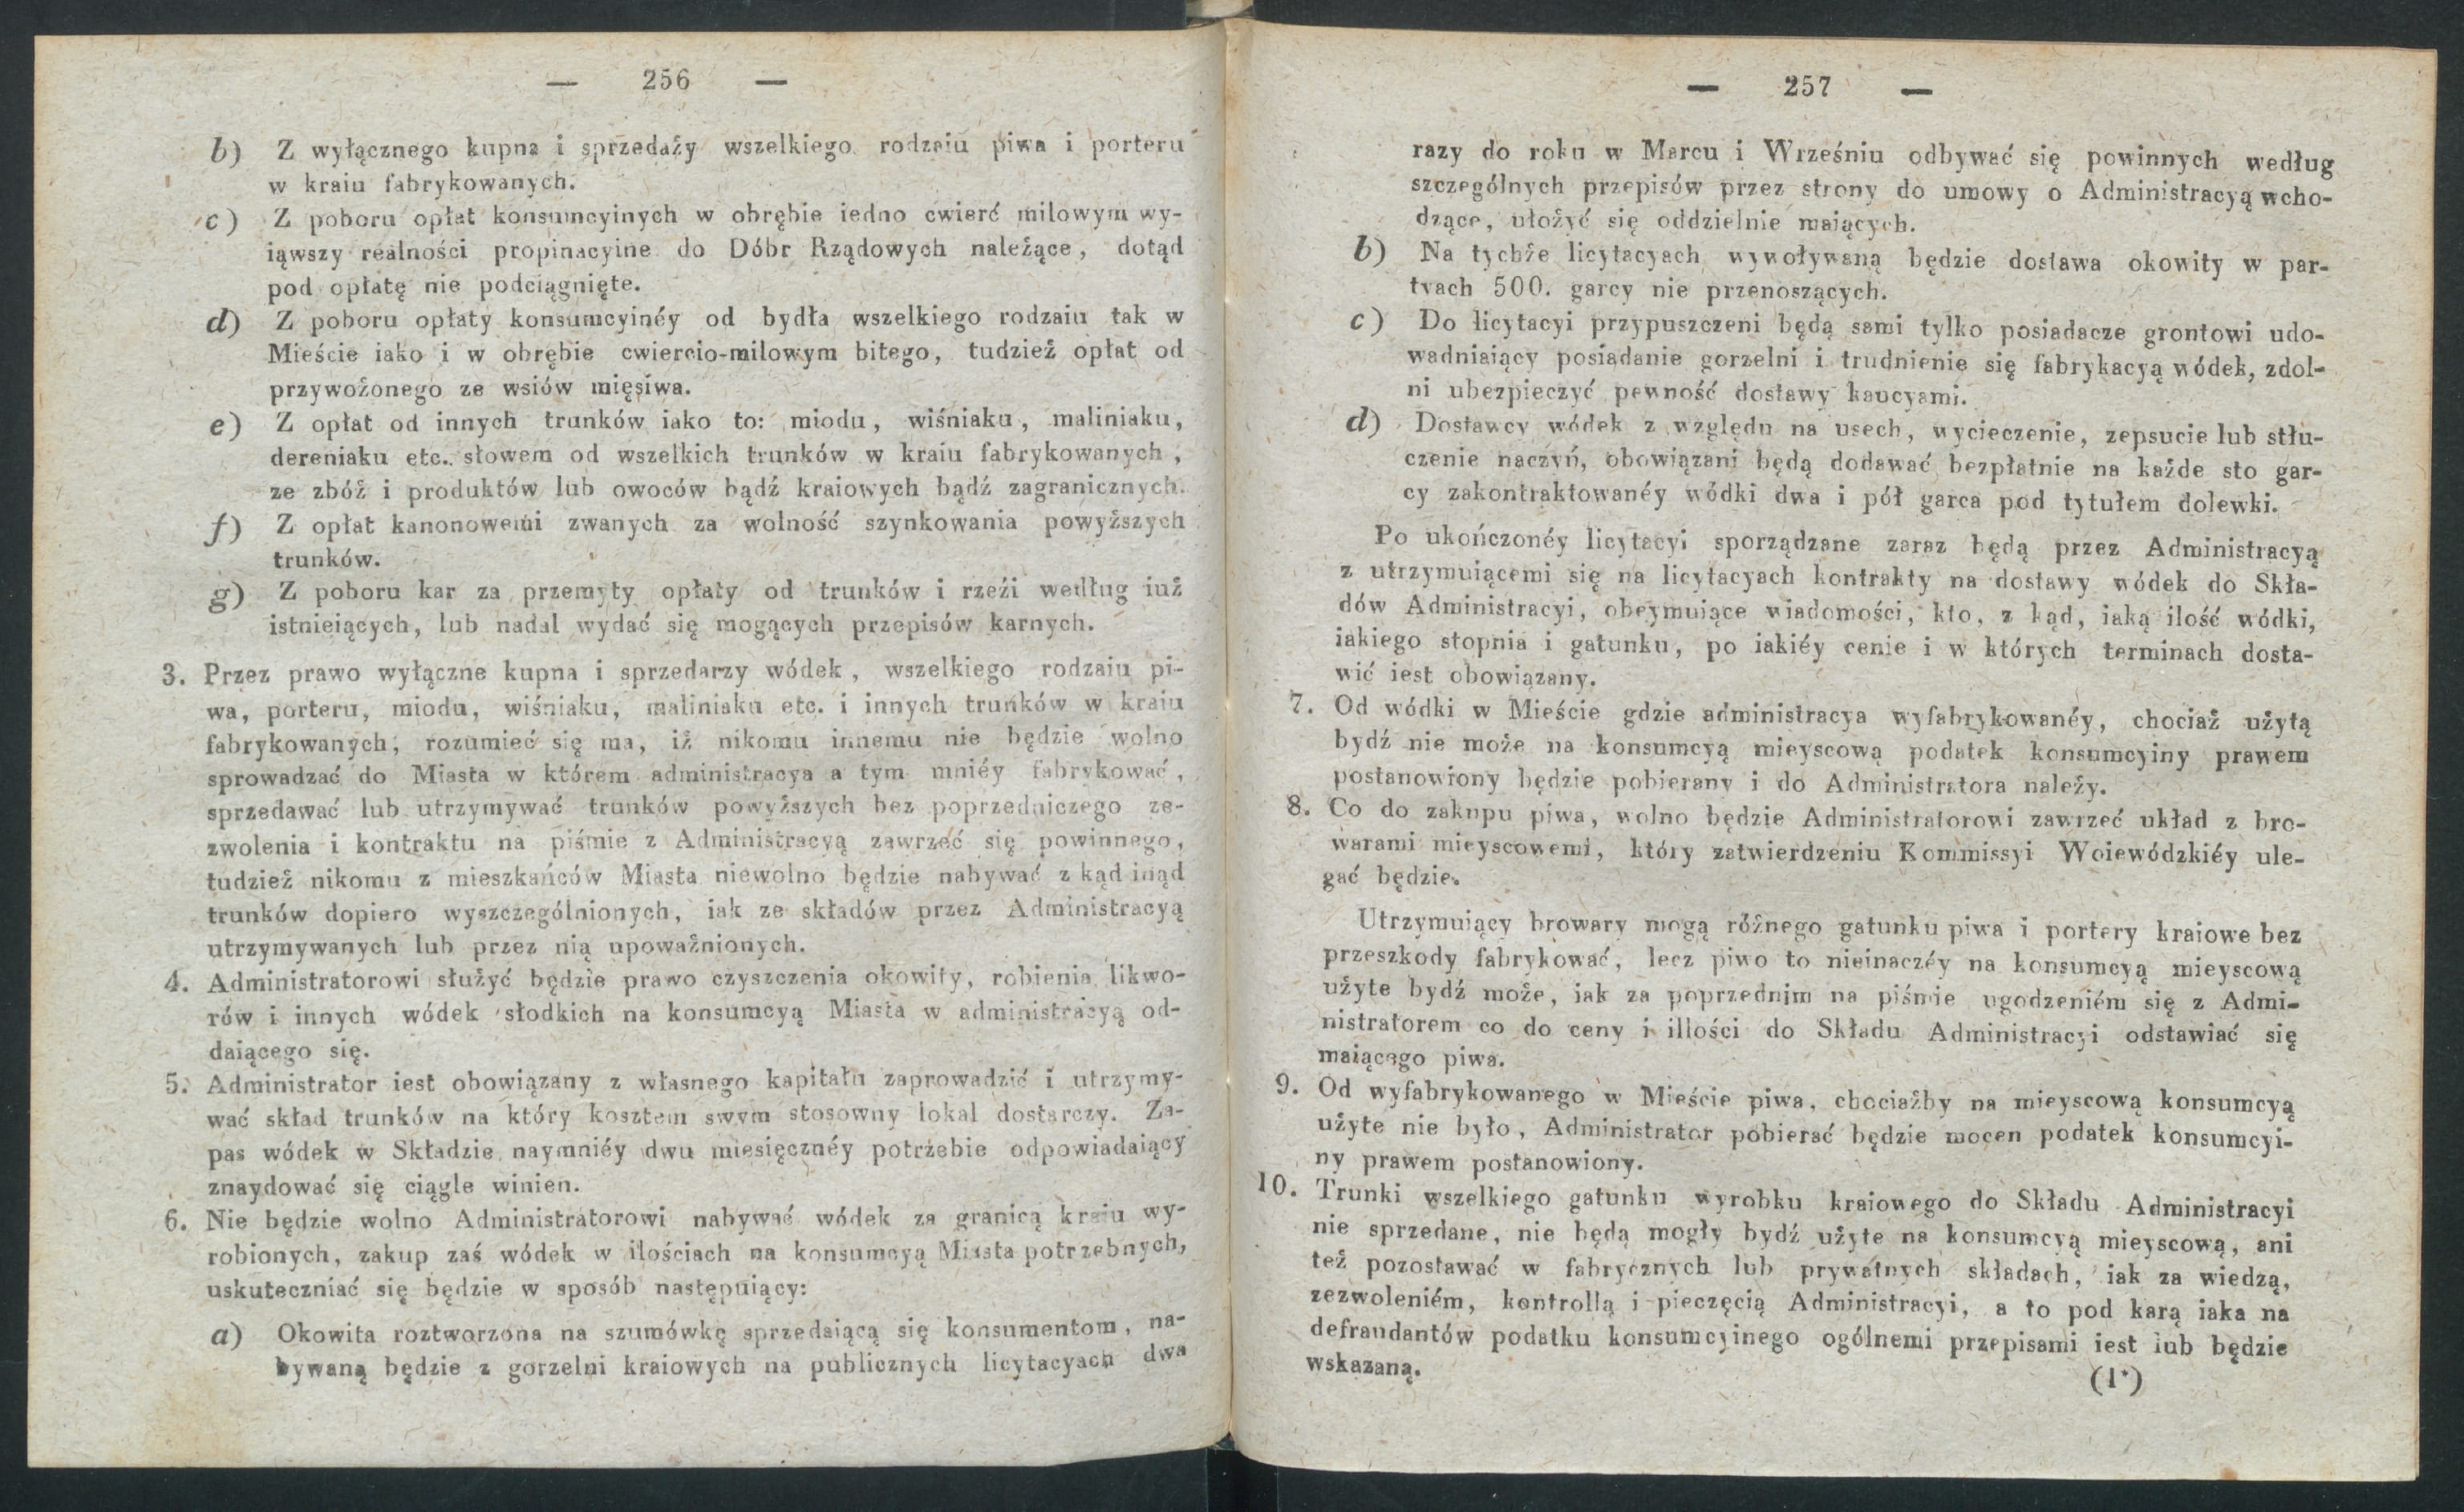 — 256 —
b) Z wyłącznego kupna i sprzedaży wszelkiego rodzaiu piwa i porteru
w kraiu fabrykowanych.
c) Z poboru opłat konsumcyinych w obrębie iedno cwierć milowym wy-
iąwszy realności propinacyine do Dóbr Rządowych należące, dotąd
pod opłatę nie podciągnięte.
d) Z poboru opłaty konsumcyinéy od bydła wszelkiego rodzaiu tak w
Mieście iako i w obrębie cwiercio-milowym bitego, tudzież opłat od
przywożonego ze wsiów mięsiwa.
e) Z opłat od innych trunków iako to: miodu, wiśniaku, maliniaku,
dereniaku etc. słowem od wszelkich trunków w kraiu fabrykowanych,
ze zbóż i produktów lub owoców bądź kraiowych bądź zagranicznych.
f) Z opłat kanonowemi zwanych za wolność szynkowania powyższych
trunków.
g) Z poboru kar za przemyty opłaty od trunków i rzeźi według iuż
istnieiących, lub nadal wydać się mogących przepisów karnych.
3. Przez prawo wyłączne kupna i sprzedarzy wódek, wszelkiego rodzaiu pi-
wa, porteru, miodu, wiśniaku, maliniaku etc. i innych trunków w kraiu
fabrykowanych, rozumieć się ma, iż nikomu innemu nie będzie wolno
sprowadzać do Miasta w którem administracya a tym mniéy fabrykować,
sprzedawać lub utrzymywać trunków powyższych bez poprzedniczego ze-
zwolenia i kontraktu na piśmie z Administracyą zawrzeć się powinnego,
tudzież nikomu z mieszkańców Miasta niewolno będzie nabywać z kąd inąd
trunków dopiero wyszczególnionych, iak ze składów przez Administracyą
utrzymywanych lub przez nią upoważnionych.
4. Administratorowi służyć będzie prawo czyszczenia okowity, robienia likwo-
rów i innych wódek słodkich na konsumcyą Miasta w administracyą od-
daiącego się.
5. Administrator iest obowiązany z własnego kapitału zaprowadzić i utrzymy-
wać skład trunków na który kosztem swym stosowny lokal dostarczy. Za-
pas wódek w Składzie naymniéy dwu miesięcznéy potrzebie odpowiadaiący
znaydować się ciągle winien.
6. Nie będzie wolno Administratorowi nabywać wódek za granicą kraiu wy-
robionych, zakup zaś wódek w ilościach na konsumcyą Miasta potrzebnych,
uskuteczniać się będzie w sposób następuiący:
a) Okowita roztworzona na szumówkę sprzedaiącą się konsumentom, na-
bywaną będzie z gorzelni kraiowych na publicznych licytacyach dwa
— 257 —
razy do roku w Marcu i Wrześniu odbywać się powinnych według
szczególnych przepisów przez strony do umowy o Administracyą wcho-
dzące, ułożyć się oddzielnie maiących.
b) Na tychże licytacyach wywoływaną będzie dostawa okowity w par-
tyach 500. garcy nie przenoszących.
c) Do licytacyi przypuszczeni będą sami tylko posiadacze grontowi udo-
wadniaiący posiadanie gorzelni i trudnienie się fabrykacyą wódek, zdol-
ni ubezpieczyć pewność dostawy kaucyami.
d) Dostawcy wódek z względu na usech, wycieczenie, zepsucie lub stłu-
czenie naczyń, obowiązani będą dodawać bezpłatnie na każde sto gar-
cy zakontraktowanéy wódki dwa i pół garca pod tytułem dolewki.
Po ukończonéy licytacyi sporządzane zaraz będą przez Administracyą
z utrzymuiącemi się na licytacyach kontrakty na dostawy wódek do Skła-
dów Administracyi, obeymuiące wiadomości, kto, z kąd, iaką ilość wódki,
iakiego stopnia i gatunku, po iakiéy cenie i w których terminach dosta-
wić iest obowiązany.
7. Od wódki w Mieście gdzie administracya wyfabrykowanéy, chociaż użytą
bydź nie może na konsumcyą mieyscową podatek konsumcyiny prawem
postanowiony będzie pobierany i do Administratora należy.
8. Co do zakupu piwa, wolno będzie Administratorowi zawrzeć układ z bro-
warami mieyscowemi, który zatwierdzeniu Kommissyi Woiewódzkiéy ule-
gać będzie.
Utrzymuiący browary mogą różnego gatunku piwa i portery kraiowe bez
przeszkody fabrykować, lecz piwo to nieinaczéy na konsumcyą mieyscową
użyte bydź może, iak za poprzednim na piśmie ugodzeniém się z Admi-
nistratorem co do ceny i illości do Składu Administracyi odstawiać się
maiącego piwa.
9. Od wyfabrykowanego w Mieście piwa, chociażby na mieyscową konsumcyą
użyte nie było, Administrator pobierać będzie mocen podatek konsumcyi-
ny prawem postanowiony.
10. Trunki wszelkiego gatunku wyrobku kraiowego do Składu Administracyi
nie sprzedane, nie będą mogły bydź użyte na konsumcyą mieyscową, ani
też pozostawać w fabrycznych lub prywatnych składach, iak za wiedzą,
zezwoleniém, kontrollą i pieczęcią Administracyi, a to pod karą iaka na
defraudantów podatku konsumcyinego ogólnemi przepisami iest lub będzie
wskazaną.
(1*)